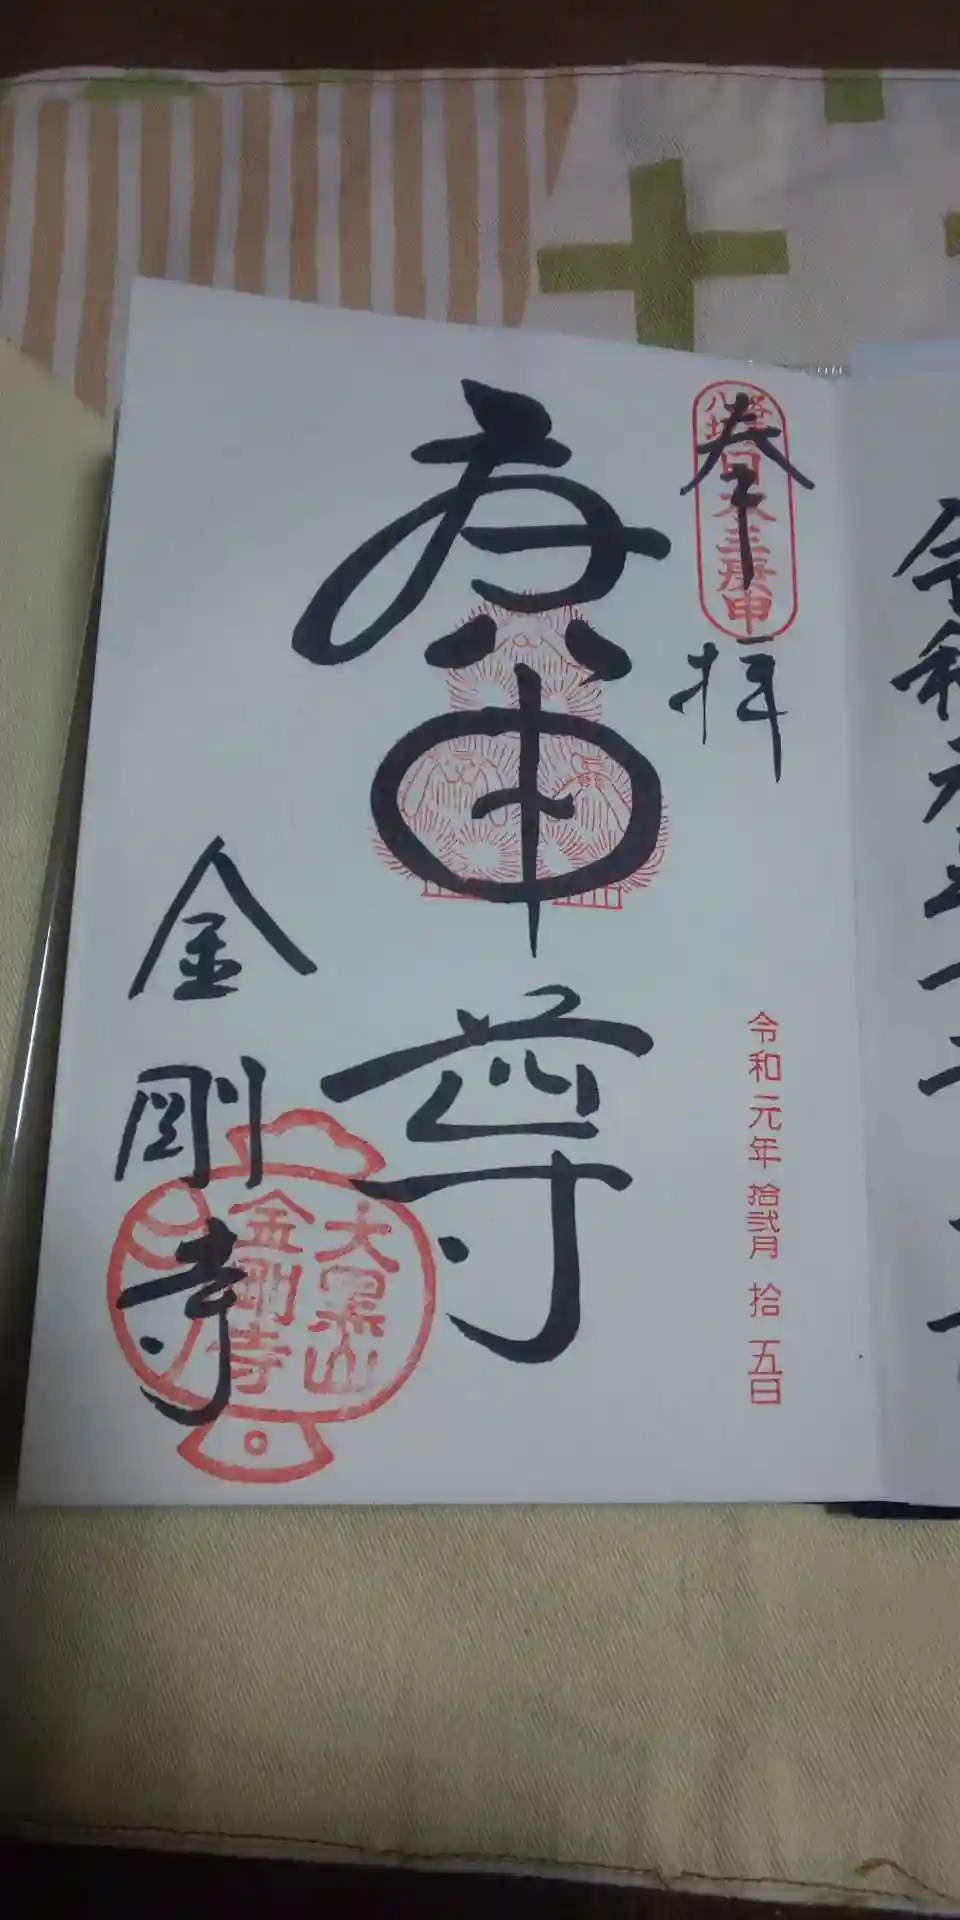 奉拝
日本三庚申
令和元年拾弐月拾五日
庚申尊
金剛寺
大黒山
金剛寺
令和元年十二